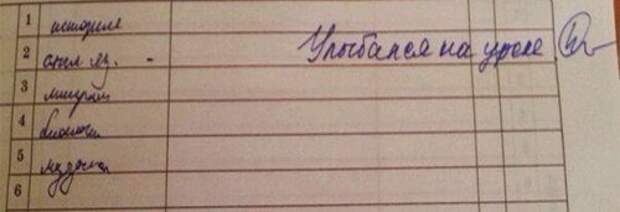 1 история
2 англ. яз. - Улыбался на уроке.
3 литерат
4 биология
5
6